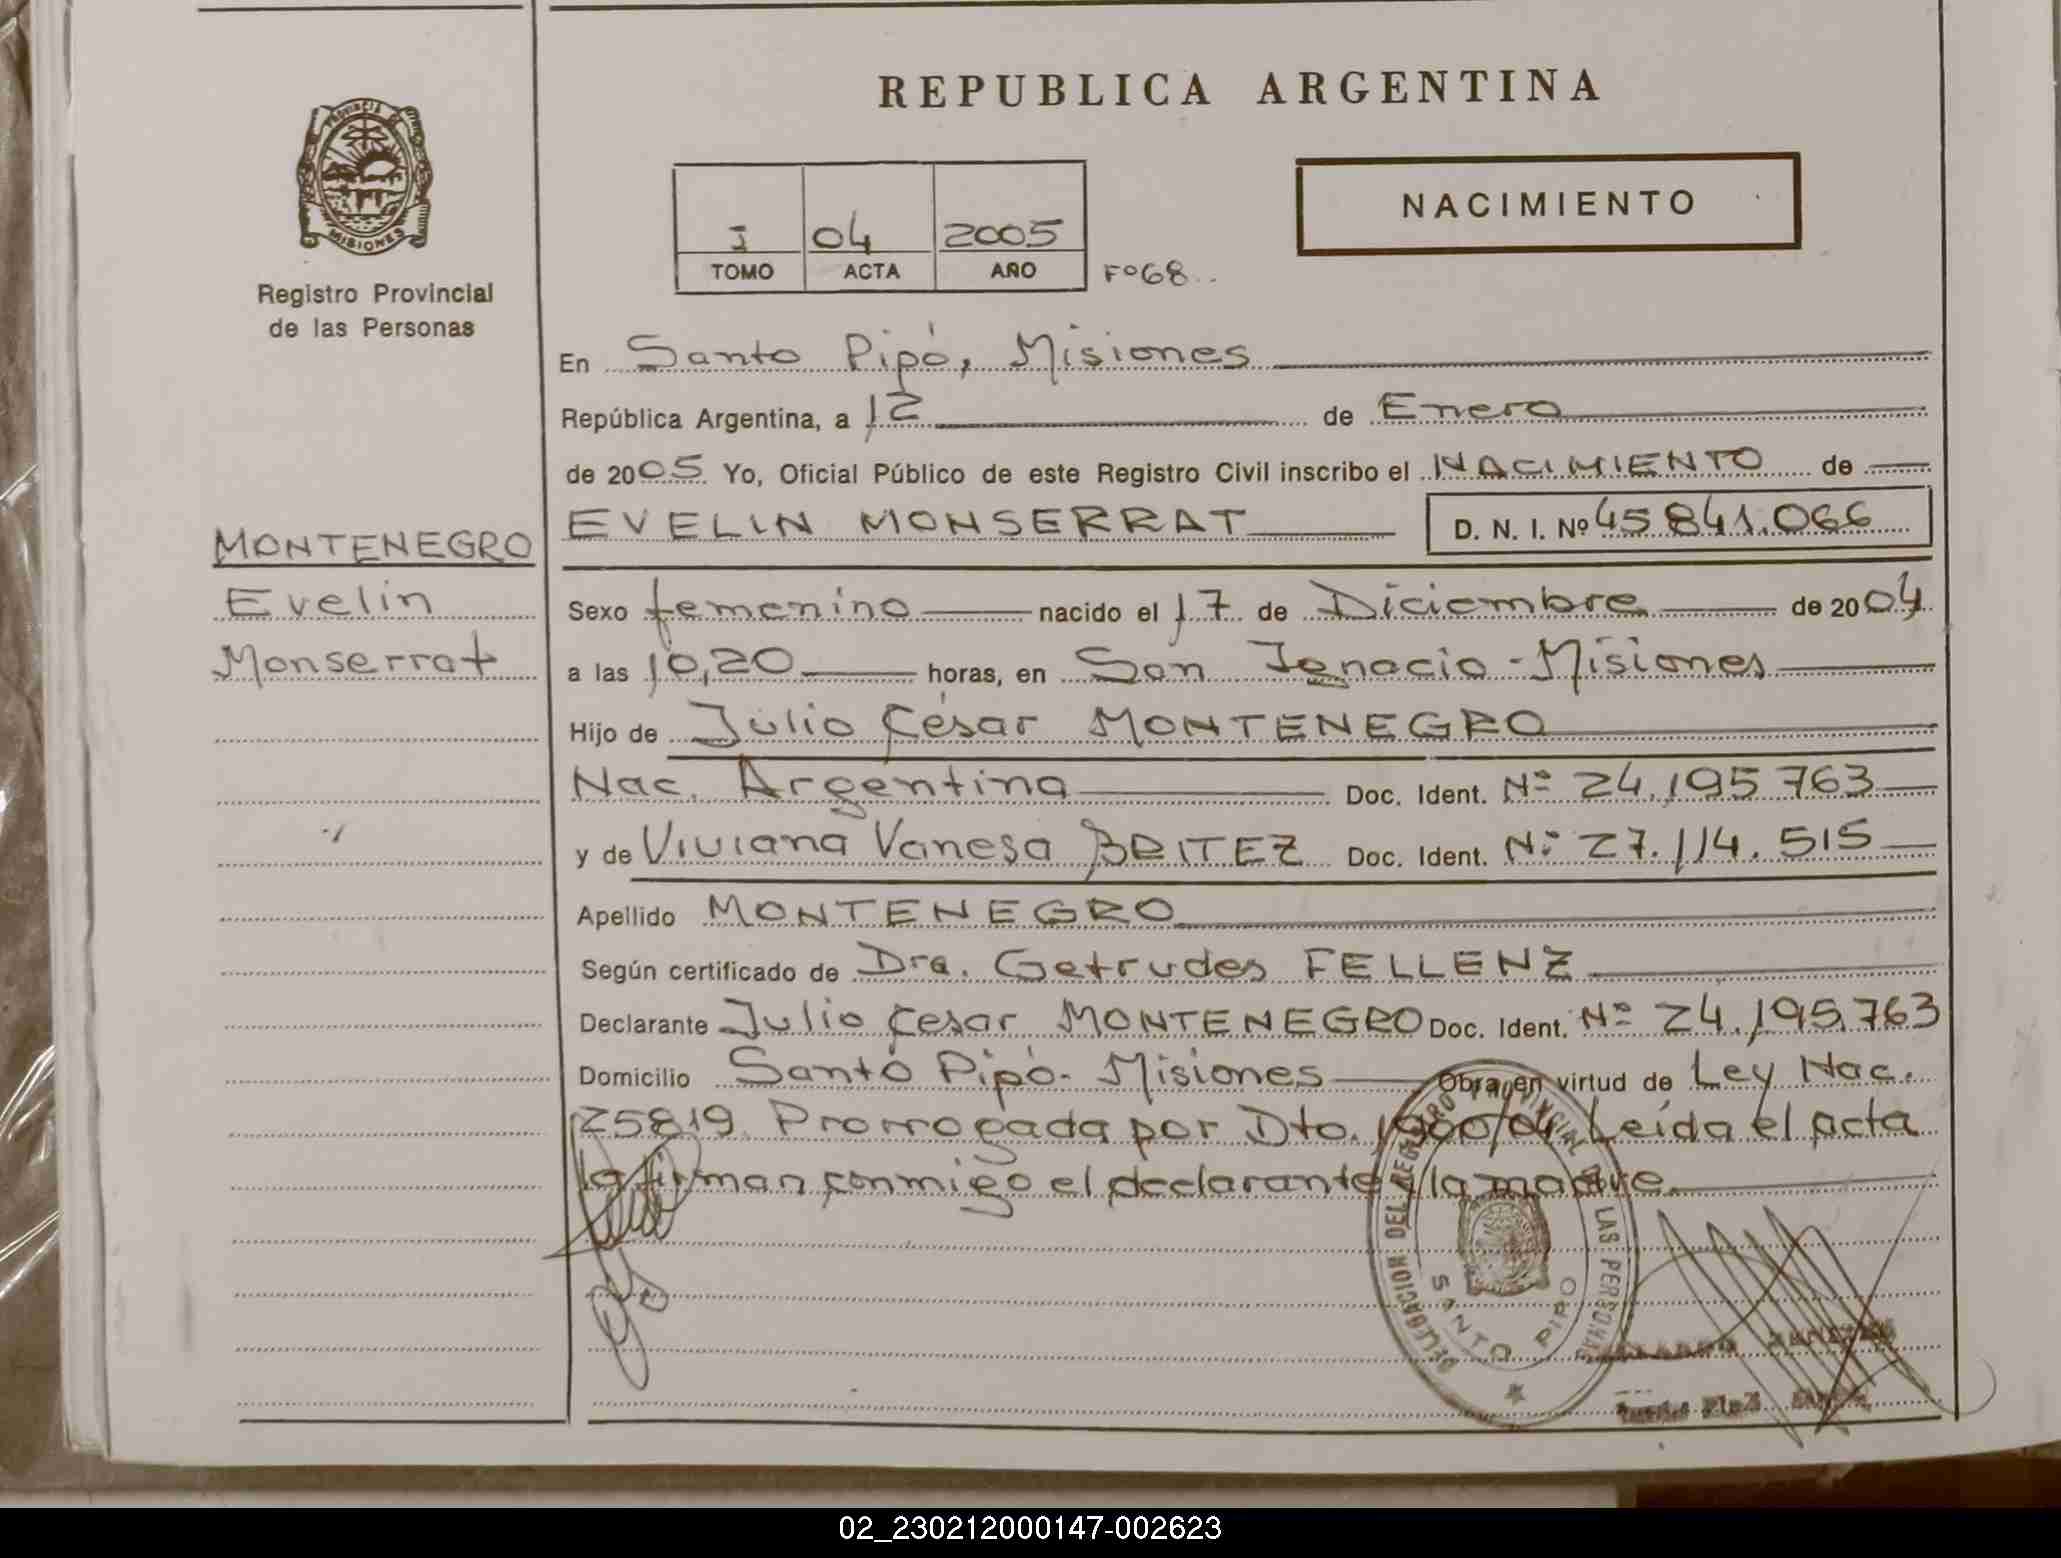 REPUBLICA ARGENTINA
PROVINCIA DE
MISIONES
Registro Provincial
de las Personas
I 04 2005
TOMO ACTA AÑO
Fº68..
NACIMIENTO
En Santo Pipó, Misiones
República Argentina, a 12 de Enero
de 2005 Yo, Oficial Público de este Registro Civil inscribo el NACIMIENTO de
EVELIN MONSERRAT D. N. I. Nº 45.841.066
MONTENEGRO
Evelin
Monserrat
Sexo femenino nacido el 17 de Diciembre de 2004
a las 10,20 horas, en San Ignacio - Misiones
Hijo de Julio César MONTENEGRO
Nac. Argentina Doc. Ident. Nº 24.195.763
y de Viviana Vanesa BRITEZ Doc. Ident. Nº 27.114.515
Apellido MONTENEGRO
Según certificado de Dra. Getrudes FELLENZ
Declarante Julio Cesar MONTENEGRO Doc. Ident. Nº 24.195.763
Domicilio Santo Pipó - Misiones Obra en virtud de Ley Nac.
25819 Prorrogada por Dto. 1900/04 Leída el acta
la firman conmigo el declarante y la madre.
DELEGACION DEL REGISTRO PROVINCIAL DE LAS PERSONAS
SANTO PIPO
02_230212000147-002623